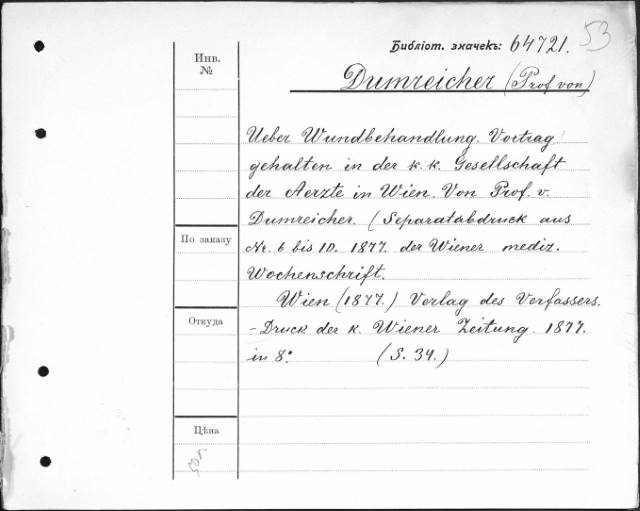 Библіот. значекъ: 64721. 53
Инв.
№
Dumreicher (Prof. von)
Ueber Wundbehandlung. Vortrag
gehalten in der k. k. Gesellschaft
der Aerzte in Wien. Von Prof. v.
Dumreicher. (Separatabdruck aus
По заказу
Nr. 6 bis 10. 1877. der Wiener mediz.
Wochenschrift.
Wien (1877.) Verlag des Verfassers.
Откуда
- Druck der k. Wiener Zeitung. 1877.
in 8°. (S. 34.)
Цѣна